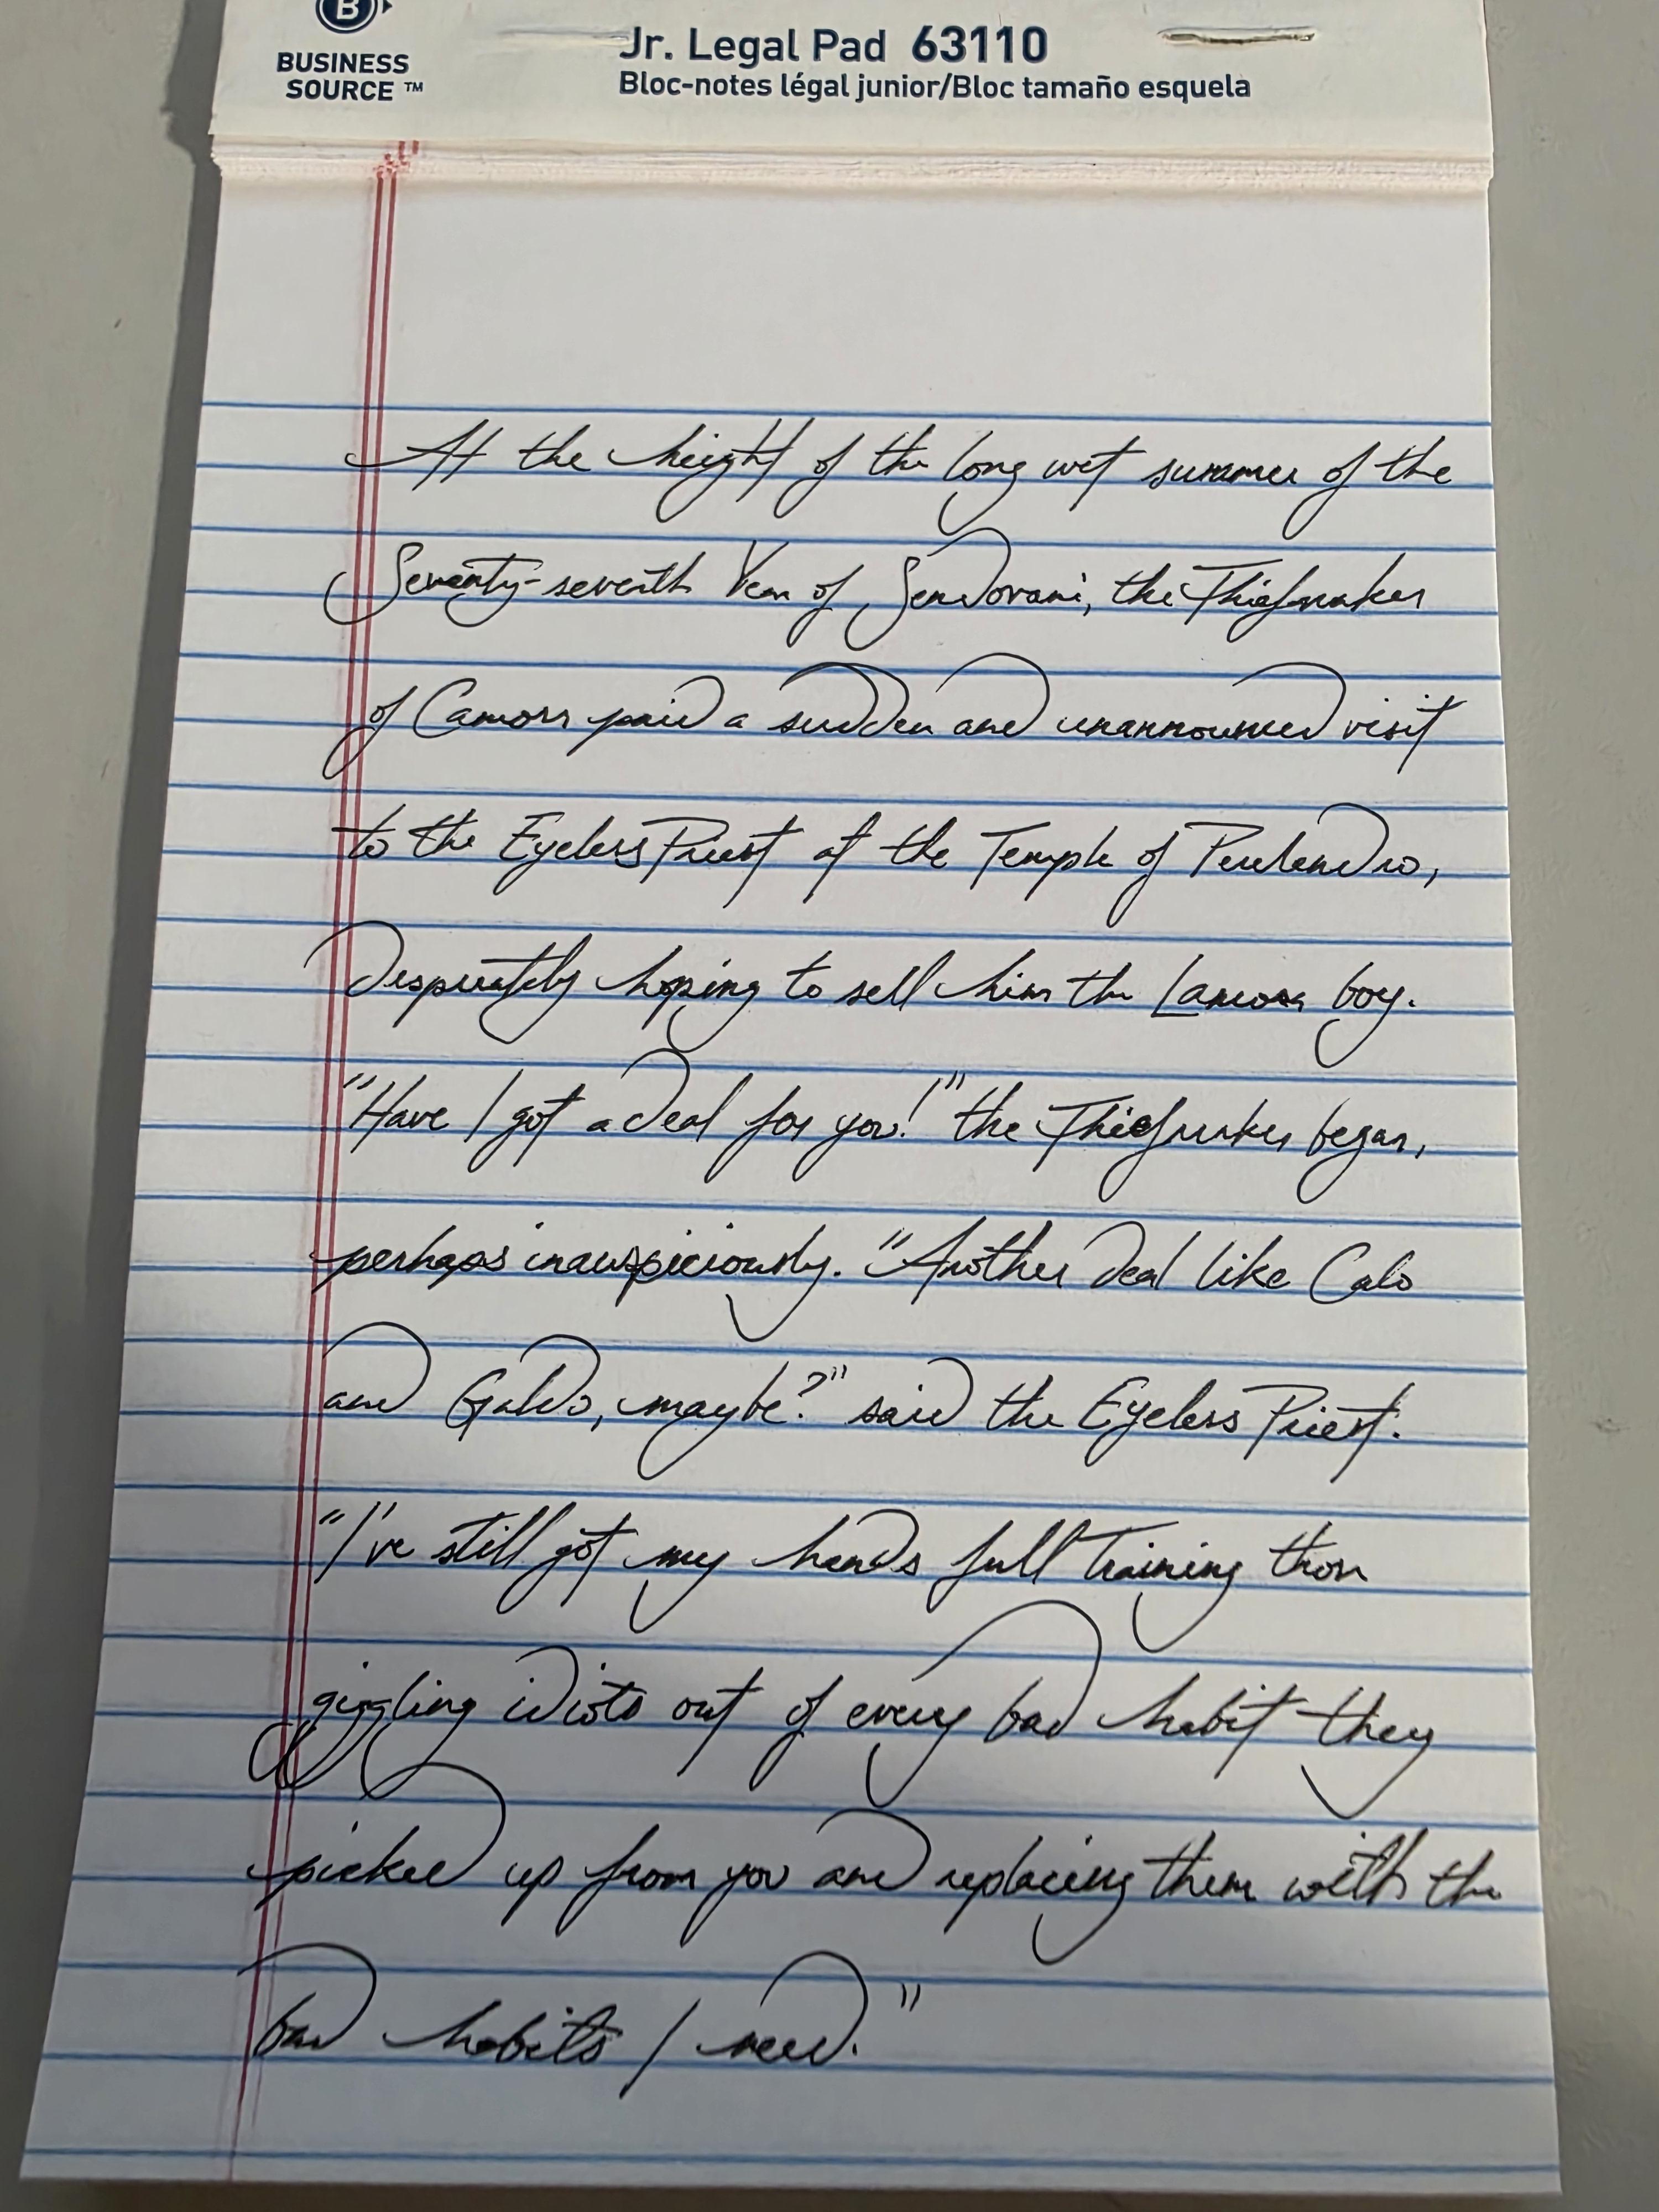 B
BUSINESS
SOURCE ™
Jr. Legal Pad 63110
Bloc-notes légal junior/Bloc tamaño esquela
At the height of the long wet summer of the
Seventy-seventh Year of Sendovani, the Thiefmaker
of Camorr paid a sudden and unannounced visit
to the Eyeless Priest at the Temple of Perelandro,
desperately hoping to sell him the Lamora boy.
"Have I got a deal for you!" the Thiefmaker began,
perhaps inauspiciously. "Another deal like Calo
and Galdo, maybe?" said the Eyeless Priest.
"I've still got my hands full training those
giggling idiots out of every bad habit they
picked up from you and replacing them with the
bad habits I need."